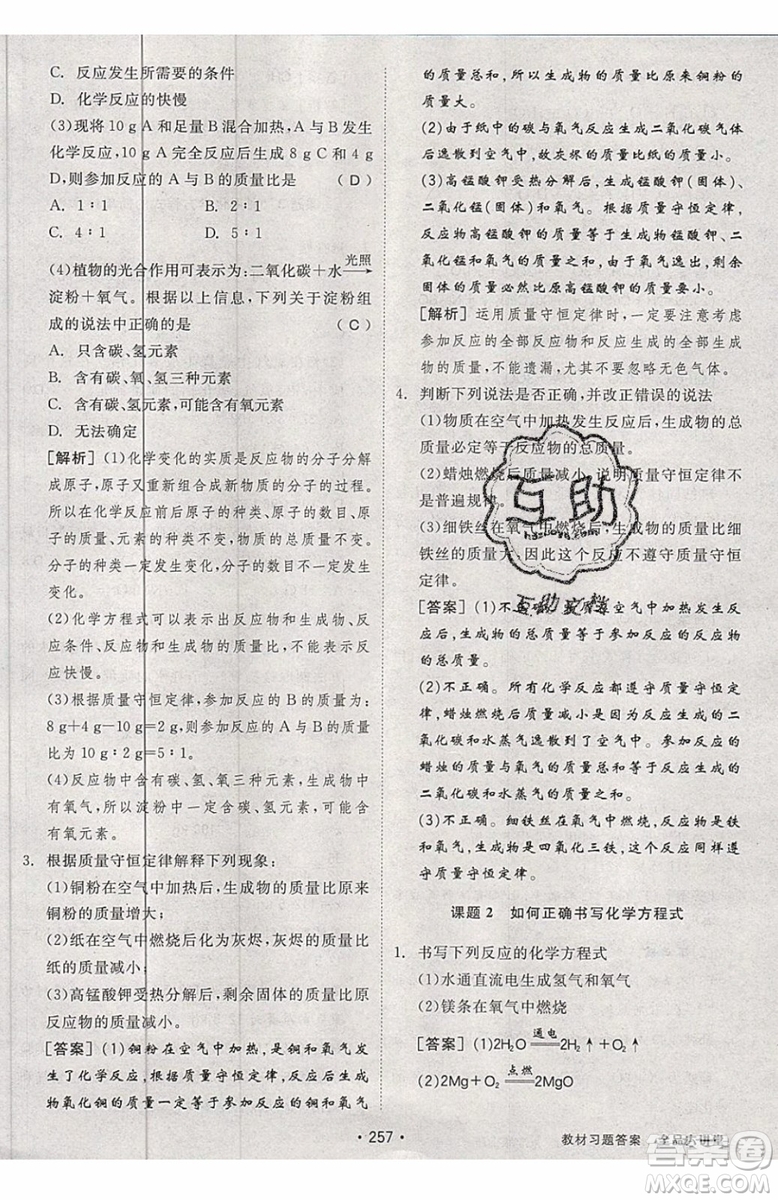 C. 反应发生所需要的条件
D. 化学反应的快慢
(3)现将 10 g A 和足量 B 混合加热,A 与 B 发生反应,10 g A 完全反应后生成 8 g C 和 4 g
D,则参加反应的 A 与 B 的质量比是 (D)
A. 1∶1 B. 2∶1
C. 4∶1 D. 5∶1
(4)植物的光合作用可表示为:二氧化碳+水 光照→
淀粉+氧气。根据以上信息,下列关于淀粉组
成的说法中正确的是 (C)
A. 只含碳、氢元素
B. 含有碳、氧、氢三种元素
C. 含有碳、氢元素,可能含有氧元素
D. 无法确定
[解析] (1)化学变化的实质是反应物的分子分解
成原子,原子又重新组合成新物质的分子的过程。
所以在化学反应前后原子的种类、原子的数目、原
子的质量不变,元素的种类不变,分子的种类、物
质的种类一定发生变化,分子的数目可能发生
变化。
(2)化学方程式可以表示出反应物和生成物、反
应条件、反应物和生成物的质量比,不能表示反
应快慢。
(3)根据质量守恒定律,参加反应的 B 的质量为:
8 g+4 g−10 g=2 g,则参加反应的 A 与 B 的质
量比为 10 g∶2 g=5∶1。
(4)反应物中含有碳、氢、氧三种元素,生成物中
有氧气,所以淀粉中一定含碳、氢元素,可能含有
氧元素。
3. 根据质量守恒定律解释下列现象:
(1)铜粉在空气中加热后,生成物的质量比原来
铜粉的质量增大。
(2)纸在空气中燃烧后化为灰烬,灰烬的质量比
纸的质量减小。
(3)高锰酸钾受热分解后,剩余固体的质量比原
反应物的质量减小。
[答案] (1)铜粉在空气中加热,是铜和氧气发
生了化学反应,根据质量守恒定律,反应的生成
物氧化铜的质量一定等于参加反应的铜和氧气
的质量总和,所以生成物的质量比原来铜粉的
质量大。
(2)由于纸中的碳与氧气反应生成二氧化碳气体
后逸散到空气中,故灰烬的质量比纸的质量小。
(3)高锰酸钾受热分解后,生成锰酸钾(固体)、
二氧化锰(固体)和氧气。根据质量守恒定律,
反应物高锰酸钾的质量等于生成物锰酸钾、二
氧化锰和氧气的质量之和,由于氧气逸出,剩余
固体的质量就比反应物高锰酸钾的质量要小。
[解析] 运用质量守恒定律时,一定要注意是参
加反应的全部反应物的质量和生成的全部生成
物的质量,不能遗漏,尤其不要忽略无色气体。
4. 判断下列说法是否正确,并改正错误的说法
(1)物质在空气中加热发生反应后,生成物的总
质量必定等于反应物的总质量。
(2)蜡烛燃烧后质量减小,说明质量守恒定律不
是普遍规律。
(3)细铁丝在氧气中燃烧后,生成物的质量比细
铁丝的质量大,因此这个反应不遵守质量守恒
定律。
[答案] (1)不正确。物质在空气中加热发生反
应后,生成物的总质量必定等于参加反应的物质
的总质量。
(2)不正确。所有化学反应都遵守质量守恒定
律,蜡烛燃烧后质量减小是因为反应生成的二
氧化碳和水蒸气逸散到了空气中。参加反应的
蜡烛的质量与氧气的质量之和等于反应生成的
二氧化碳和水蒸气的质量之和。
(3)不正确。细铁丝在氧气中燃烧,反应物是铁
和氧气,生成物是四氧化三铁,反应遵守质量守
恒定律。
课题 2 如何正确书写化学方程式
1. 书写下列反应的化学方程式
(1)水通直流电生成氢气和氧气
(2)镁条在氧气中燃烧
[答案] (1)2H₂O 通电══ 2H₂↑+O₂↑
(2)2Mg+O₂ 点燃══ 2MgO
互助
互助文档
·257·
教材习题答案 全品大讲堂
作业帮
MXQE.COM